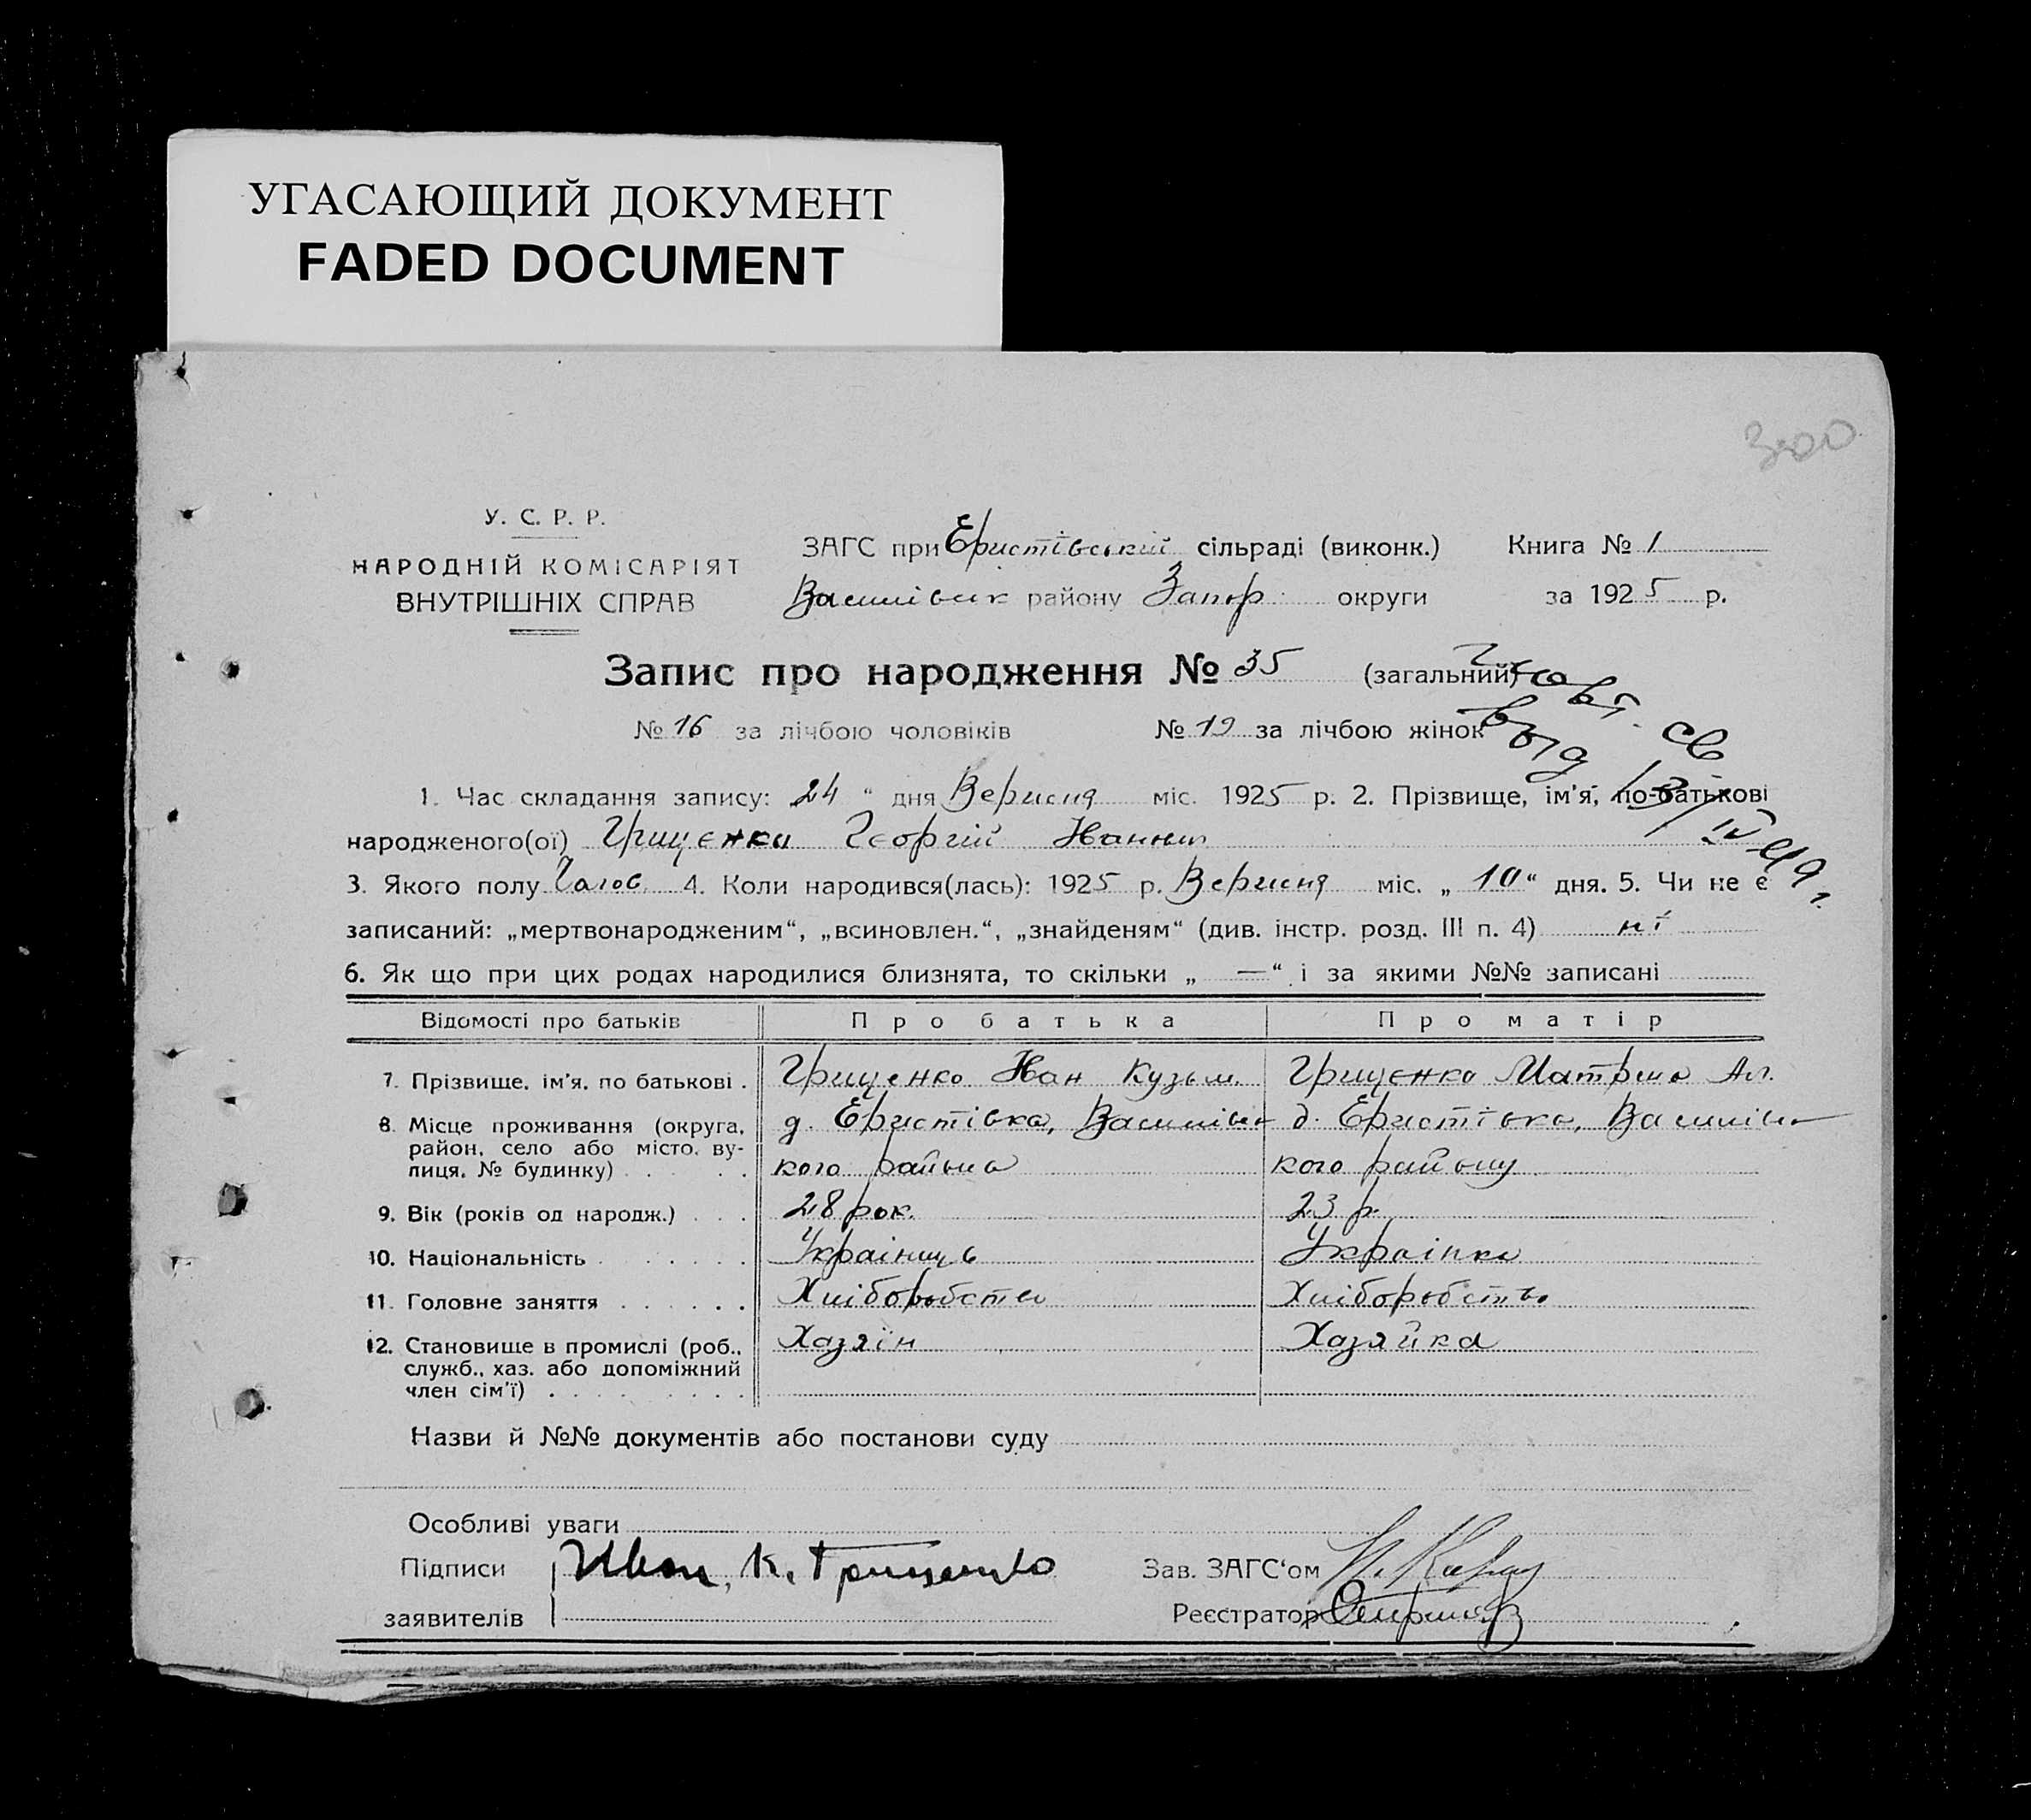 УГАСАЮЩИЙ ДОКУМЕНТ
FADED DOCUMENT
300
У. С. Р. Р.
НАРОДНІЙ КОМІСАРІЯТ
ВНУТРІШНІХ СПРАВ
ЗАГС при Єристівській сільраді (виконк.) Книга № 1
Василівск району Запор. округи за 1925 р.
Запис про народження № 35 (загальний)
№ 16 за лічбою чоловіків № 19 за лічбою жінок
повт. св
выд
13/IV 49 г.
1. Час складання запису: 24 " дня Вересня міс. 1925 р. 2. Прізвище, ім'я, по-батькові
народженого(ої) Грищенко Георгій Іванов
3. Якого полу Чолов. 4. Коли народився(лась): 1925 р. Вересня міс. „ 10 “ дня. 5. Чи не є
записаний: „мертвонародженим“, „всиновлен.“, „знайденям“ (див. інстр. розд. III п. 4) ні
6. Як що при цих родах народилися близнята, то скільки „ — “ і за якими №№ записані
Відомості про батьків Про батька Про матір
7. Прізвище, ім'я, по батькові . Грищенко Іван Кузьм. Грищенко Матрина Ал.
8. Місце проживання (округа, район, село або місто, вулиця, № будинку) . . . д. Єристівка, Васильівського району д. Єристівка, Васильівського району
9. Вік (років од народж.) . . . 28 рок. 23 р.
10. Національність . . . . . . . Українець Українка
11. Головне заняття . . . . . . Хліборобство Хліборобство
12. Становище в промислі (роб., служб., хаз. або допоміжний член сім'ї) . . . . . . . . . Хазяїн Хазяйка
Назви й №№ документів або постанови суду
Особливі уваги
Підписи Иван К. Грищенко Зав. ЗАГС‘ом
заявителів Реєстратор